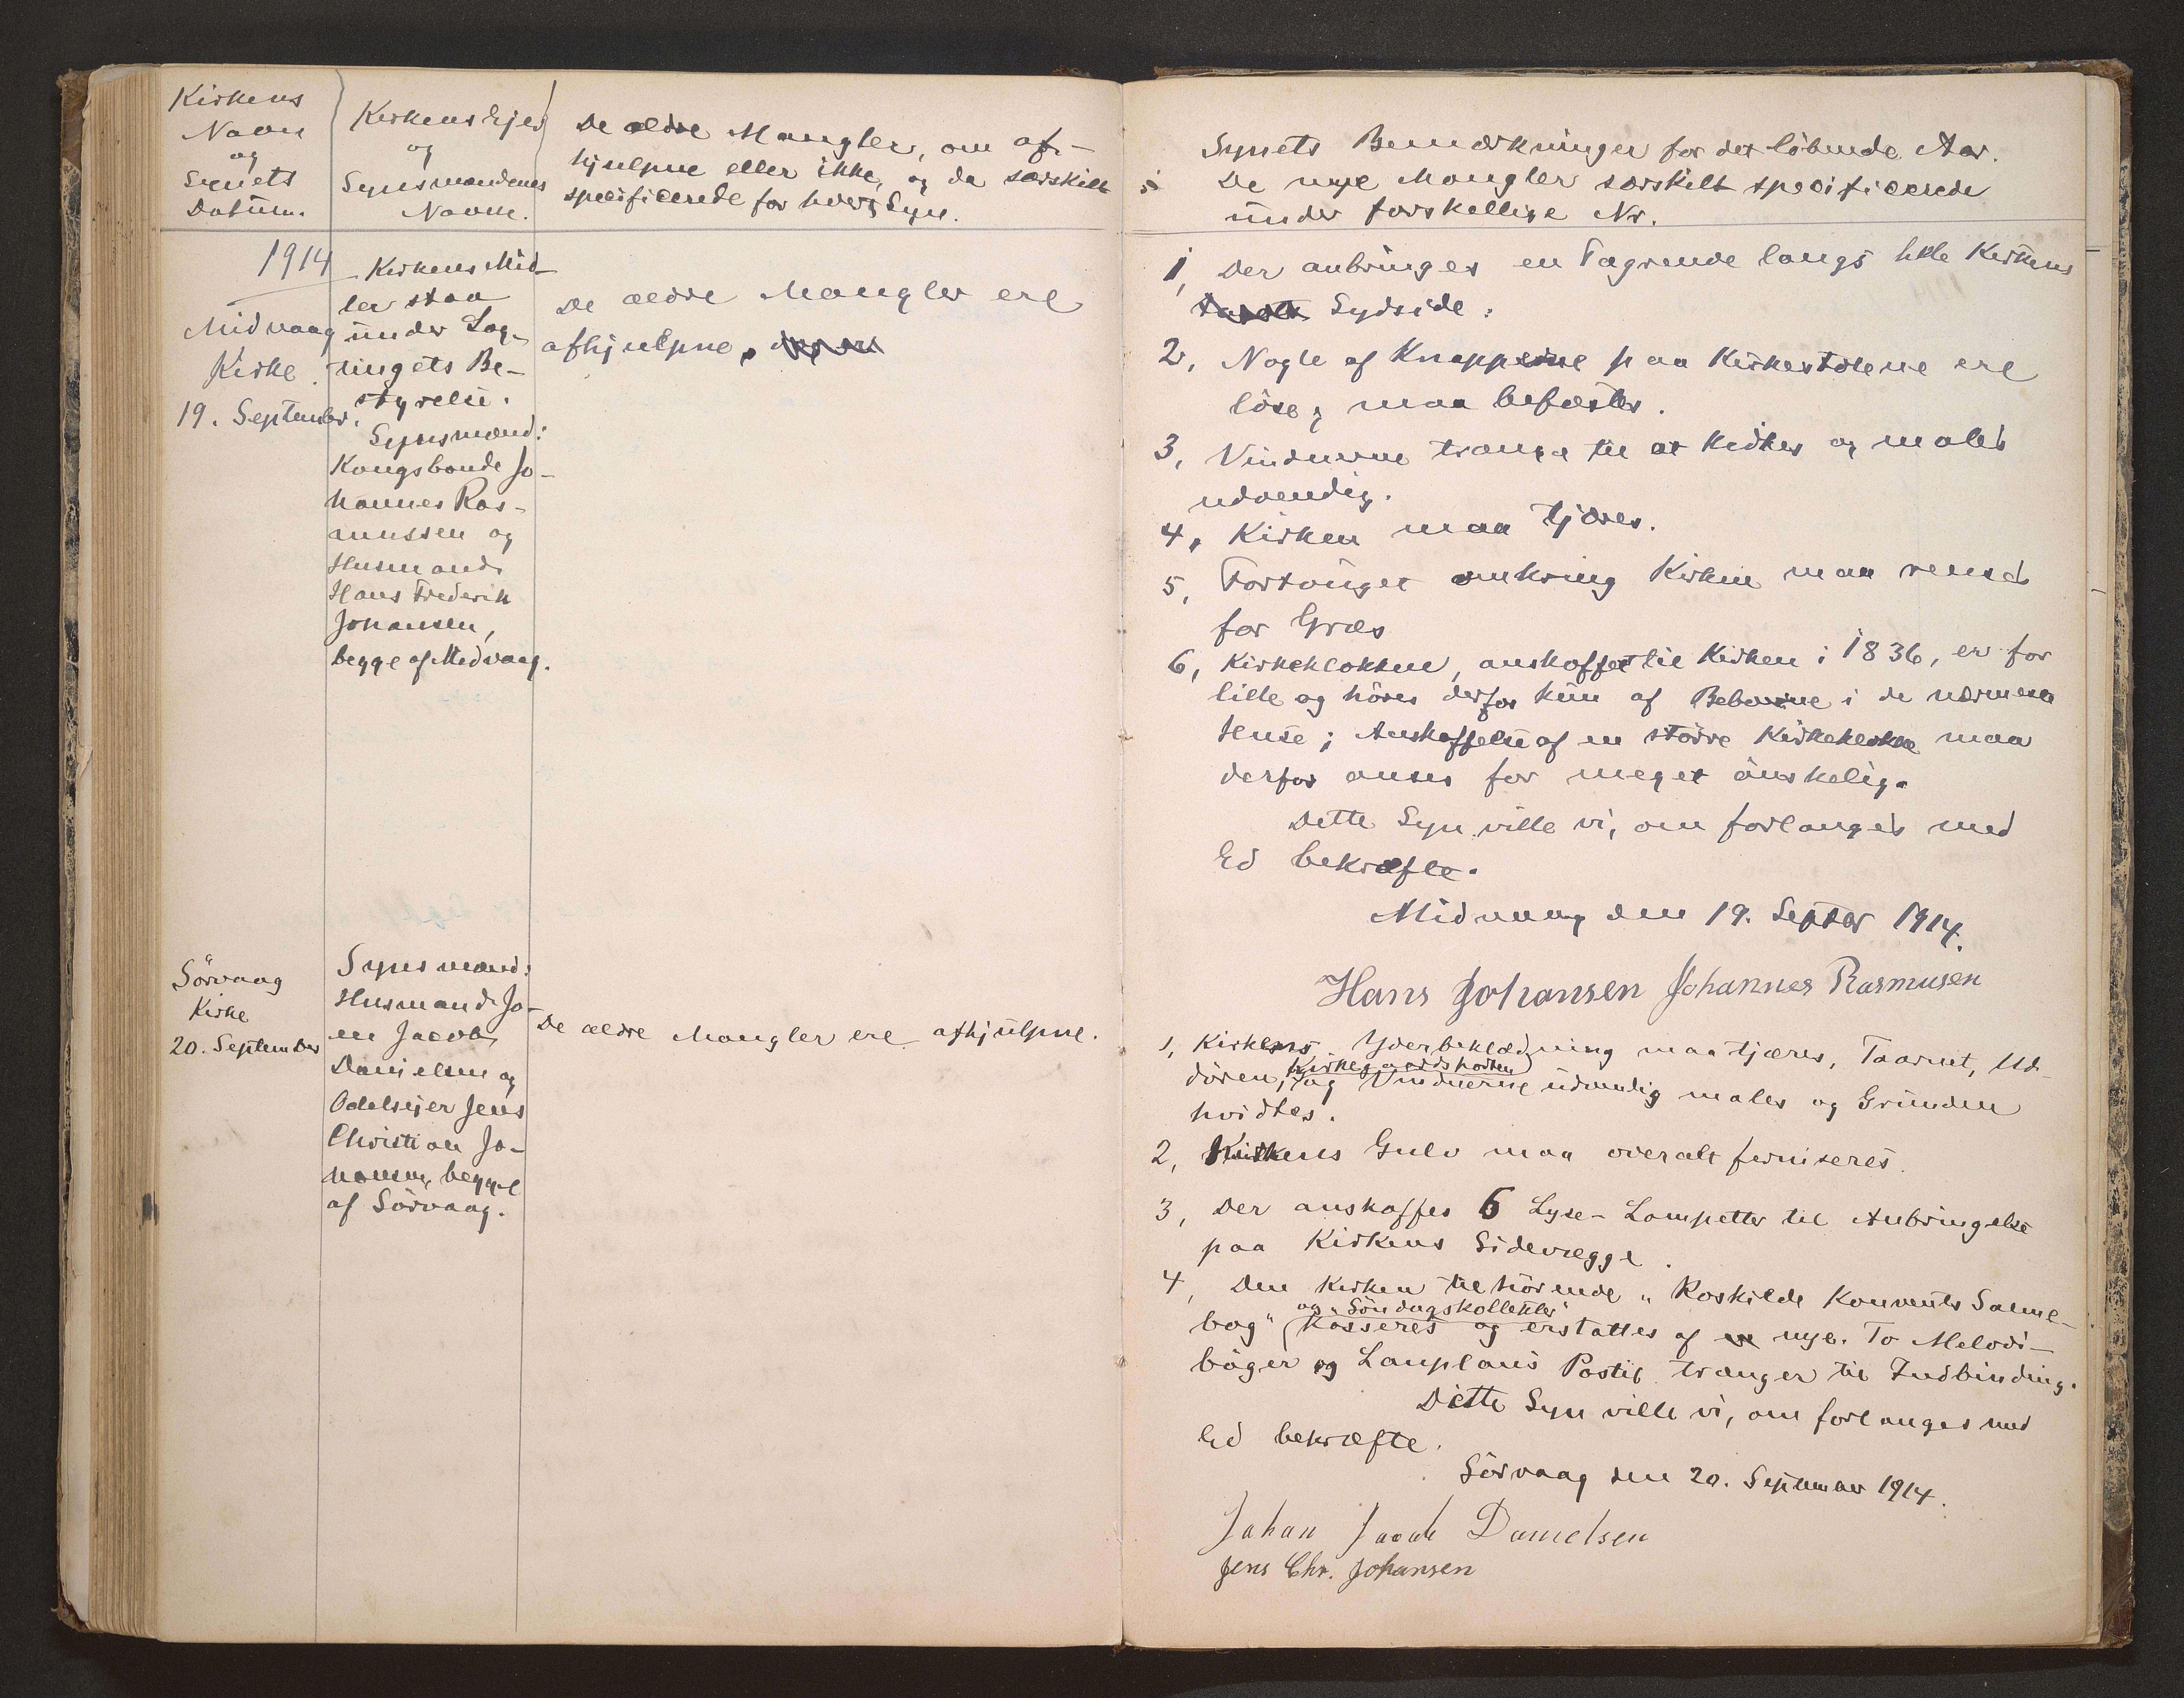 Kirkens
Navn
og
Synets
Datum.
Kirkens Ejer
og
Synsmændenes
Navne.
De ældre Mangler, om af-
hjulpne eller ikke, og da særskilt
specificerede for hvert Syn.
1914
Midvaag
Kirke.
19. September.
Kirkens Mid-
ler staa
under Lag-
tingets Be-
styrelse.
Synsmænd:
Kongsbonde Jo-
hannes Ras-
mussen og
Husmand
Hans Frederik
Johansen,
begge af Midvaag.
De ældre Mangler ere
afhjulpne.
Sörvaag
Kirke
20. September
Synsmænd:
Husmand Jo-
en Jacob
Danielsen og
Odelsejer Jens
Christian Jo-
hansen, begge
af Sörvaag.
De ældre Mangler ere afhjulpne.
Synets Bemærkninger for det löbende Aar.
De nye Mangler særskilt specificerede
under forskellige Nr.
1, Der anbringes en Tagrende langs hele Kirkens
Sydside.
2, Nogle af Knapperne paa Kirkestolene ere
löse, maa befæstes.
3, Vinduerne trænge til at kidtes og males
udvendig.
4, Kirken maa tjæres.
5, Fortouget omkring Kirken maa renses
for Græs
6, Kirkeklokken, anskaffet til Kirken i 1836, er for
lille og höres derfor kun af Beboerne i de nærmeste
Huse; Anskaffelse af en större Kirkeklokke maa
derfor anses for meget önskelig.
Dette Syn ville vi, om forlanges med
Ed bekræfte.
Midvaag den 19. Septbr 1914.
Hans Johansen Johannes Rasmusen
1, Kirkens Yderbeklædning maa tjæres, Taarnet, Ud-
Kirkegaardsporten
dören, og Vinduerne udvendig males og Grunden
hvidtes.
2, Kirkens Gulv maa overalt ferniseres.
3, Der anskaffes 6 Lyse-Lampetter til Anbringelse
paa Kirkens Sidevægge.
4, Den Kirken tilhörende "Roskilde Konvents Salme-
og "Söndagskollekter"
bog" kasseres og erstattes af nye. To Melodi-
böger og Lauplaus Postil trænger til Indbinding.
Dette Syn ville vi, om forlanges med
Ed bekræfte.
Sörvaag den 20. September 1914.
Johan Jacob Danielsen
Jens Chr. Johansen